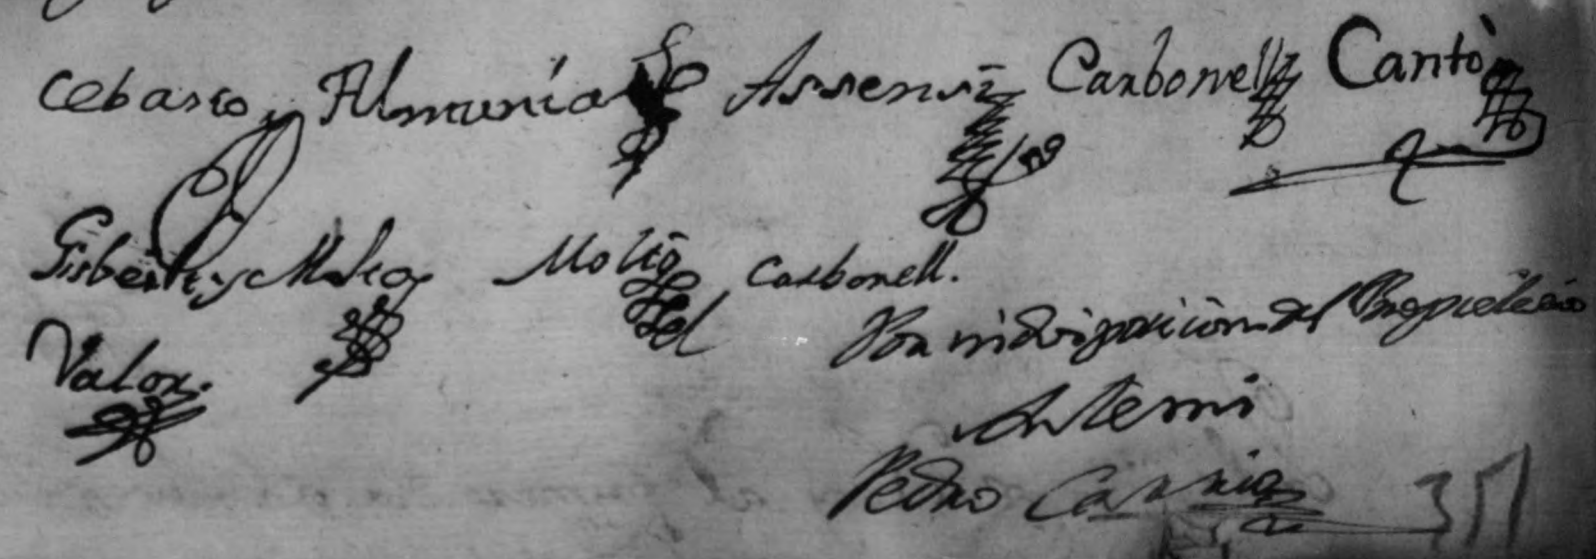 Cebasco, Almunia Assensi Carbonell Cantò
Gisbert, y Molto Carbonell.
Valor. Por indisposicion del Propietario
Antemi
Pedro Carrio